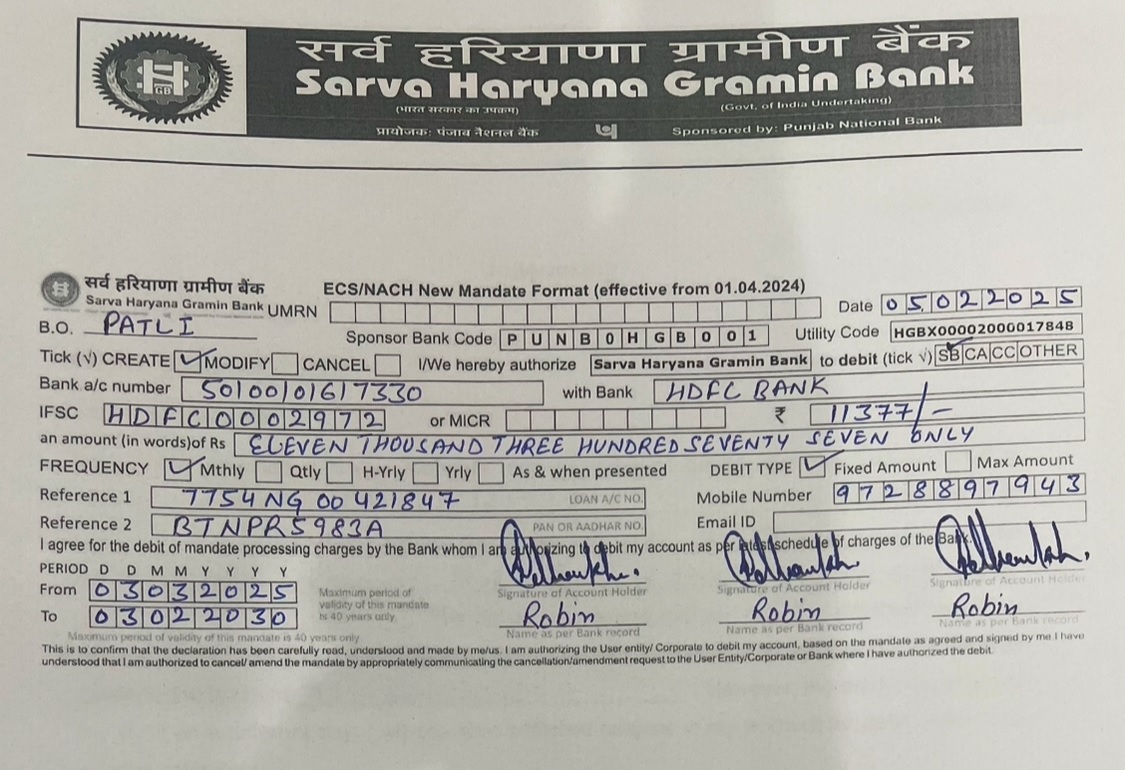 सर्व हरियाणा ग्रामीण बैंक
Sarva Haryana Gramin Bank
(भारत सरकार का उपक्रम) (Govt. of India Undertaking)
प्रायोजक: पंजाब नैशनल बैंक Sponsored by: Punjab National Bank
GB
सर्व हरियाणा ग्रामीण बैंक ECS/NACH New Mandate Format (effective from 01.04.2024)
Sarva Haryana Gramin Bank UMRN Date 05022025
B.O. PATLI Sponsor Bank Code PUNB0HGB001 Utility Code HGBX00002000017848
Tick (√) CREATE ✓ MODIFY CANCEL I/We hereby authorize Sarva Haryana Gramin Bank to debit (tick √) SB CA CC OTHER
Bank a/c number 50100101617330 with Bank HDFC BANK
IFSC HDFC0002972 or MICR ₹ 11377/-
an amount (in words)of Rs ELEVEN THOUSAND THREE HUNDRED SEVENTY SEVEN ONLY
FREQUENCY ✓ Mthly Qtly H-Yrly Yrly As & when presented DEBIT TYPE ✓ Fixed Amount Max Amount
Reference 1 7754NG00421847 LOAN A/C NO. Mobile Number 9728897943
Reference 2 BTNPR5983A PAN OR AADHAR NO. Email ID
I agree for the debit of mandate processing charges by the Bank whom I am authorizing to debit my account as per latest schedule of charges of the Bank.
PERIOD D D M M Y Y Y Y
From 03032025 Maximum period of validity of this mandate is 40 years only Signature of Account Holder Signature of Account Holder Signature of Account Holder
To 03022030 Robin Robin Robin
Maximum period of validity of this mandate is 40 years only Name as per Bank record Name as per Bank record Name as per Bank record
This is to confirm that the declaration has been carefully read, understood and made by me/us. I am authorizing the User entity/ Corporate to debit my account, based on the mandate as agreed and signed by me I have
understood that I am authorized to cancel/ amend the mandate by appropriately communicating the cancellation/amendment request to the User Entity/Corporate or Bank where I have authorized the debit.